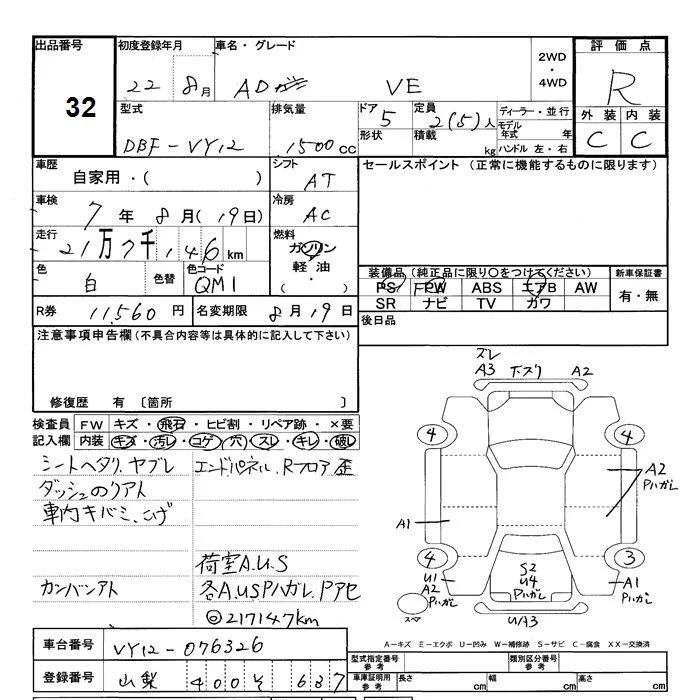 出品番号 初度登録年月 車名・グレード 2WD・4WD 評価点
32 22 8月 AD VE R
型式 排気量 ドア 定員 ディーラー・並行 外装 内装
DBF-VY12 1500cc 5 2(5)人 モデル年式 年 C C
形状 積載 kg ハンドル 左・右
車歴 シフト セールスポイント (正常に機能するものに限ります)
自家用・( ) AT
車検 7年8月(19日) 冷房 AC
走行 21万7千146km 燃料 ガソリン・軽油・( )
色 白 色替 色コード QM1
装備品(純正品に限り○をつけてください) 新車保証書
PS PW ABS エアB AW 有・無
SR ナビ TV カワ
R券 11,560円 名変期限 8月19日 後日品
注意事項申告欄(不具合内容等は具体的に記入して下さい)
修復歴 有 〔箇所 〕
検査員 FW キズ・飛石・ヒビ割・リペア跡・×要
記入欄 内装 キズ・汚レ・コゲ・穴・スレ・キレ・破レ
シートヘタリ、ヤブレ エンドパネル、Rフロア歪
ダッシュのリアト
車内キバミ、こげ
荷室A.U.S
カンバンアト 各A.U.S Pハガレ、Pアセ
◎217147km
スレ
A3 下ズリ A2
4 4
A2
Pハガレ
A1
4 3
U1 A2 Pハガレ
S2 U4 Pハガレ
A1 Pハガレ
スペア U/A3
A-キズ E-エクボ U-凹み W-補修跡 S-サビ C-腐食 XX-交換済
車台番号 VY12-076326
型式指定番号 参考 類別区分番号 参考
登録番号 山梨 400 そ 637
車庫証明用 参考 長さ cm 幅 cm 高さ cm